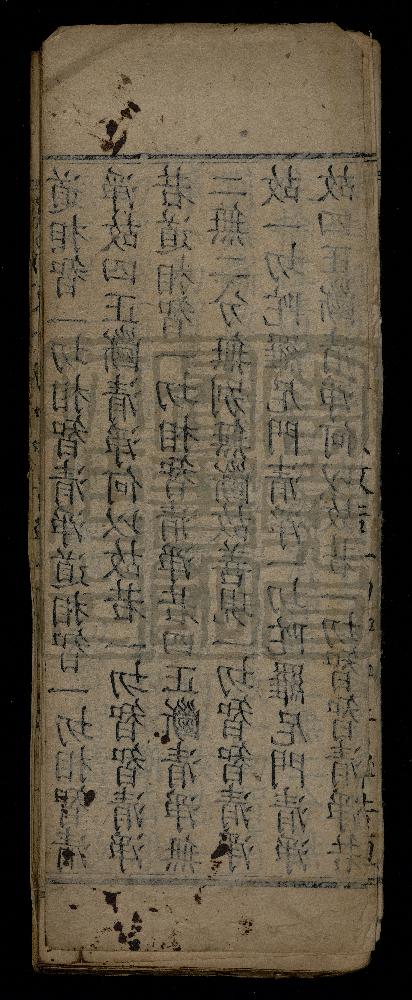 道相智一切相智清淨道相智一切相智清
淨故四正斷清淨何以故若一切智智清淨
若道相智一切相智清淨若四正斷清淨無
二無二分無別無斷故善現一切智智清淨
故一切陀羅尼門清淨一切陀羅尼門清淨
故四正斷清淨何以故若一切智智清淨若